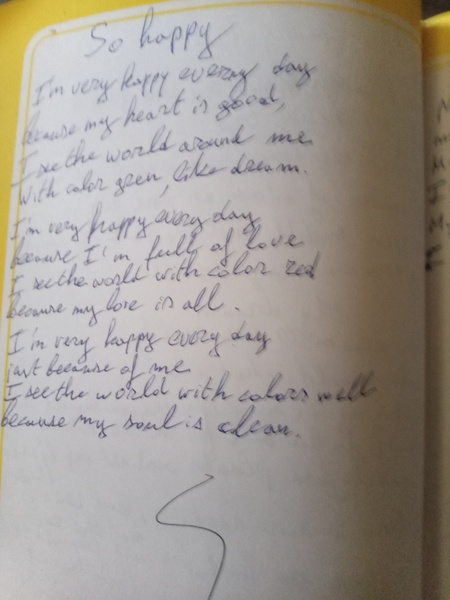 So happy
I'm very happy every day
because my heart is good,
I see the world around me
with color green, like dream.
I'm very happy every day
because I'm full of love
I see the world with color red
because my love is all.
I'm very happy every day
just because of me
I see the world with colors well
because my soul is clean.